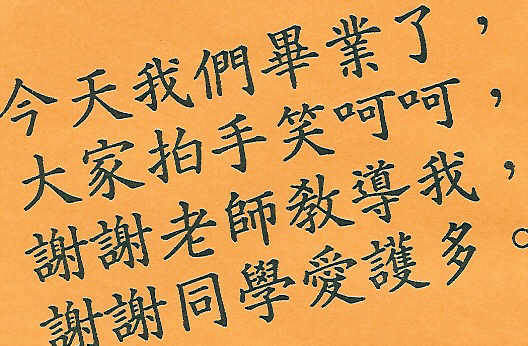 今天我們畢業了，
大家拍手笑呵呵，
謝謝老師教導我，
謝謝同學愛護多。